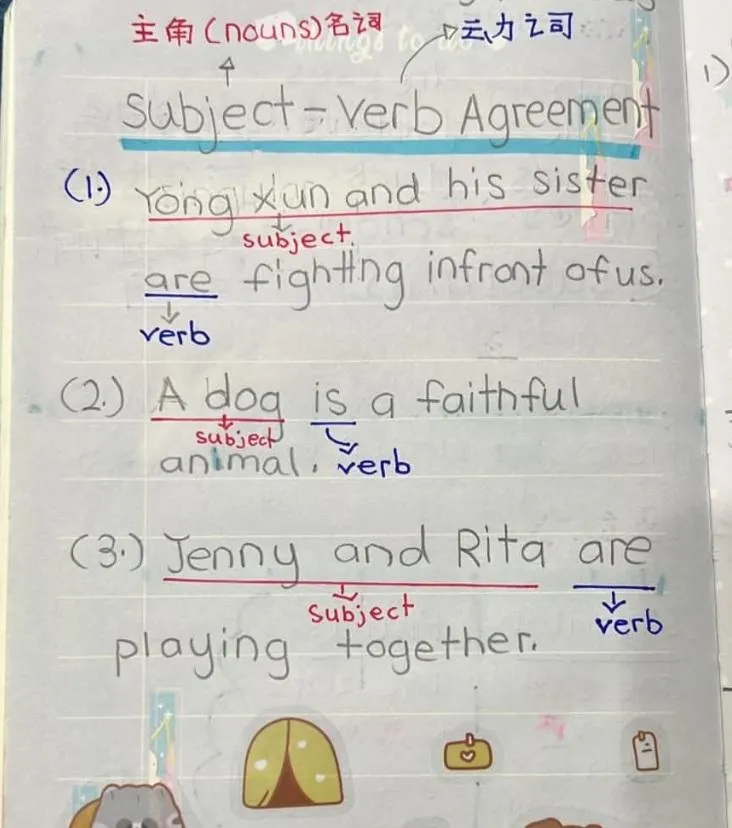 主角(nouns)名词 动词
Subject-verb Agreement
(1.) Yong Xun and his sister
subject.
are fighting infront of us.
verb
(2.) A dog is a faithful
subject
animal. verb
(3.) Jenny and Rita are
subject
verb
playing together.
1)